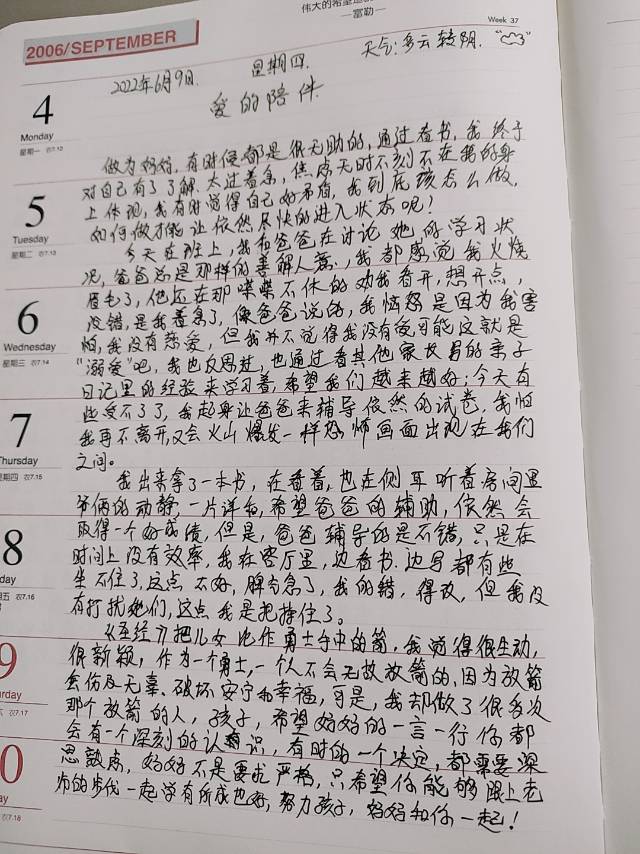 伟大的希望造就
—富勒—
Week 37
2006/SEPTEMBER
2022年6月9日. 星期四. 天气:多云转阴.
爱的陪伴.
4
Monday
星期一 农7.12
5
Tuesday
星期二 农7.13
6
Wednesday
星期三 农7.14
7
Thursday
星期四 农7.15
8
day
五 农7.16
9
rday
六 农7.17
0
ay
农7.18
做为妈妈,有时候都是很无助的,通过看书,我终于
对自己有了了解.太过着急,焦虑无时不刻不在我的身
上体现,我有时觉得自己好矛盾,我到底该怎么做,
如何做才能让依然尽快的进入状态呢!
今天在班上,我和爸爸在讨论她的学习状
况,爸爸总是那样的善解人意,我都感觉我火烧
眉毛了,他还在那喋喋不休的劝我看开,想开点,
没错,是我着急了,像爸爸说的,我恼怒是因为我害
怕,我没有慈爱,但我并不觉得我没有爱,可能这就是
“溺爱”吧,我也反思过,也通过看其他家长写的亲子
日记里的经验来学习着,希望我们越来越好;今天有
些受不了了,我起身让爸爸来辅导依然的试卷,我怕
我再不离开,又会火山爆发一样恐怖画面出现在我们
之间。
我出来拿了一本书,在看着,也在侧耳听着房间里
爷俩的动静,一片详和,希望爸爸的辅助,依然会
取得一个好成绩,但是,爸爸辅导的是不错,只是在
时间上没有效率,我在客厅里,边看书.边写都有些
坐不住了,这点不好,脾气急了,我的错,得改,但我没
有打扰她们,这点我是把持住了。
《圣经》把儿女比作勇士手中的箭,我觉得很生动,
很新颖,作为一个勇士,一个人不会无故放箭的,因为放箭
会伤及无辜.破坏安宁和幸福,可是,我却做了很多次
那个放箭的人,孩子,希望妈妈的一言一行你都
会有一个深刻的认识,有时的一个决定,都需要深
思熟虑,妈妈不是要求严格,只希望你能够跟上老
师的步伐一起学有所成也好,努力孩子,妈妈和你一起!